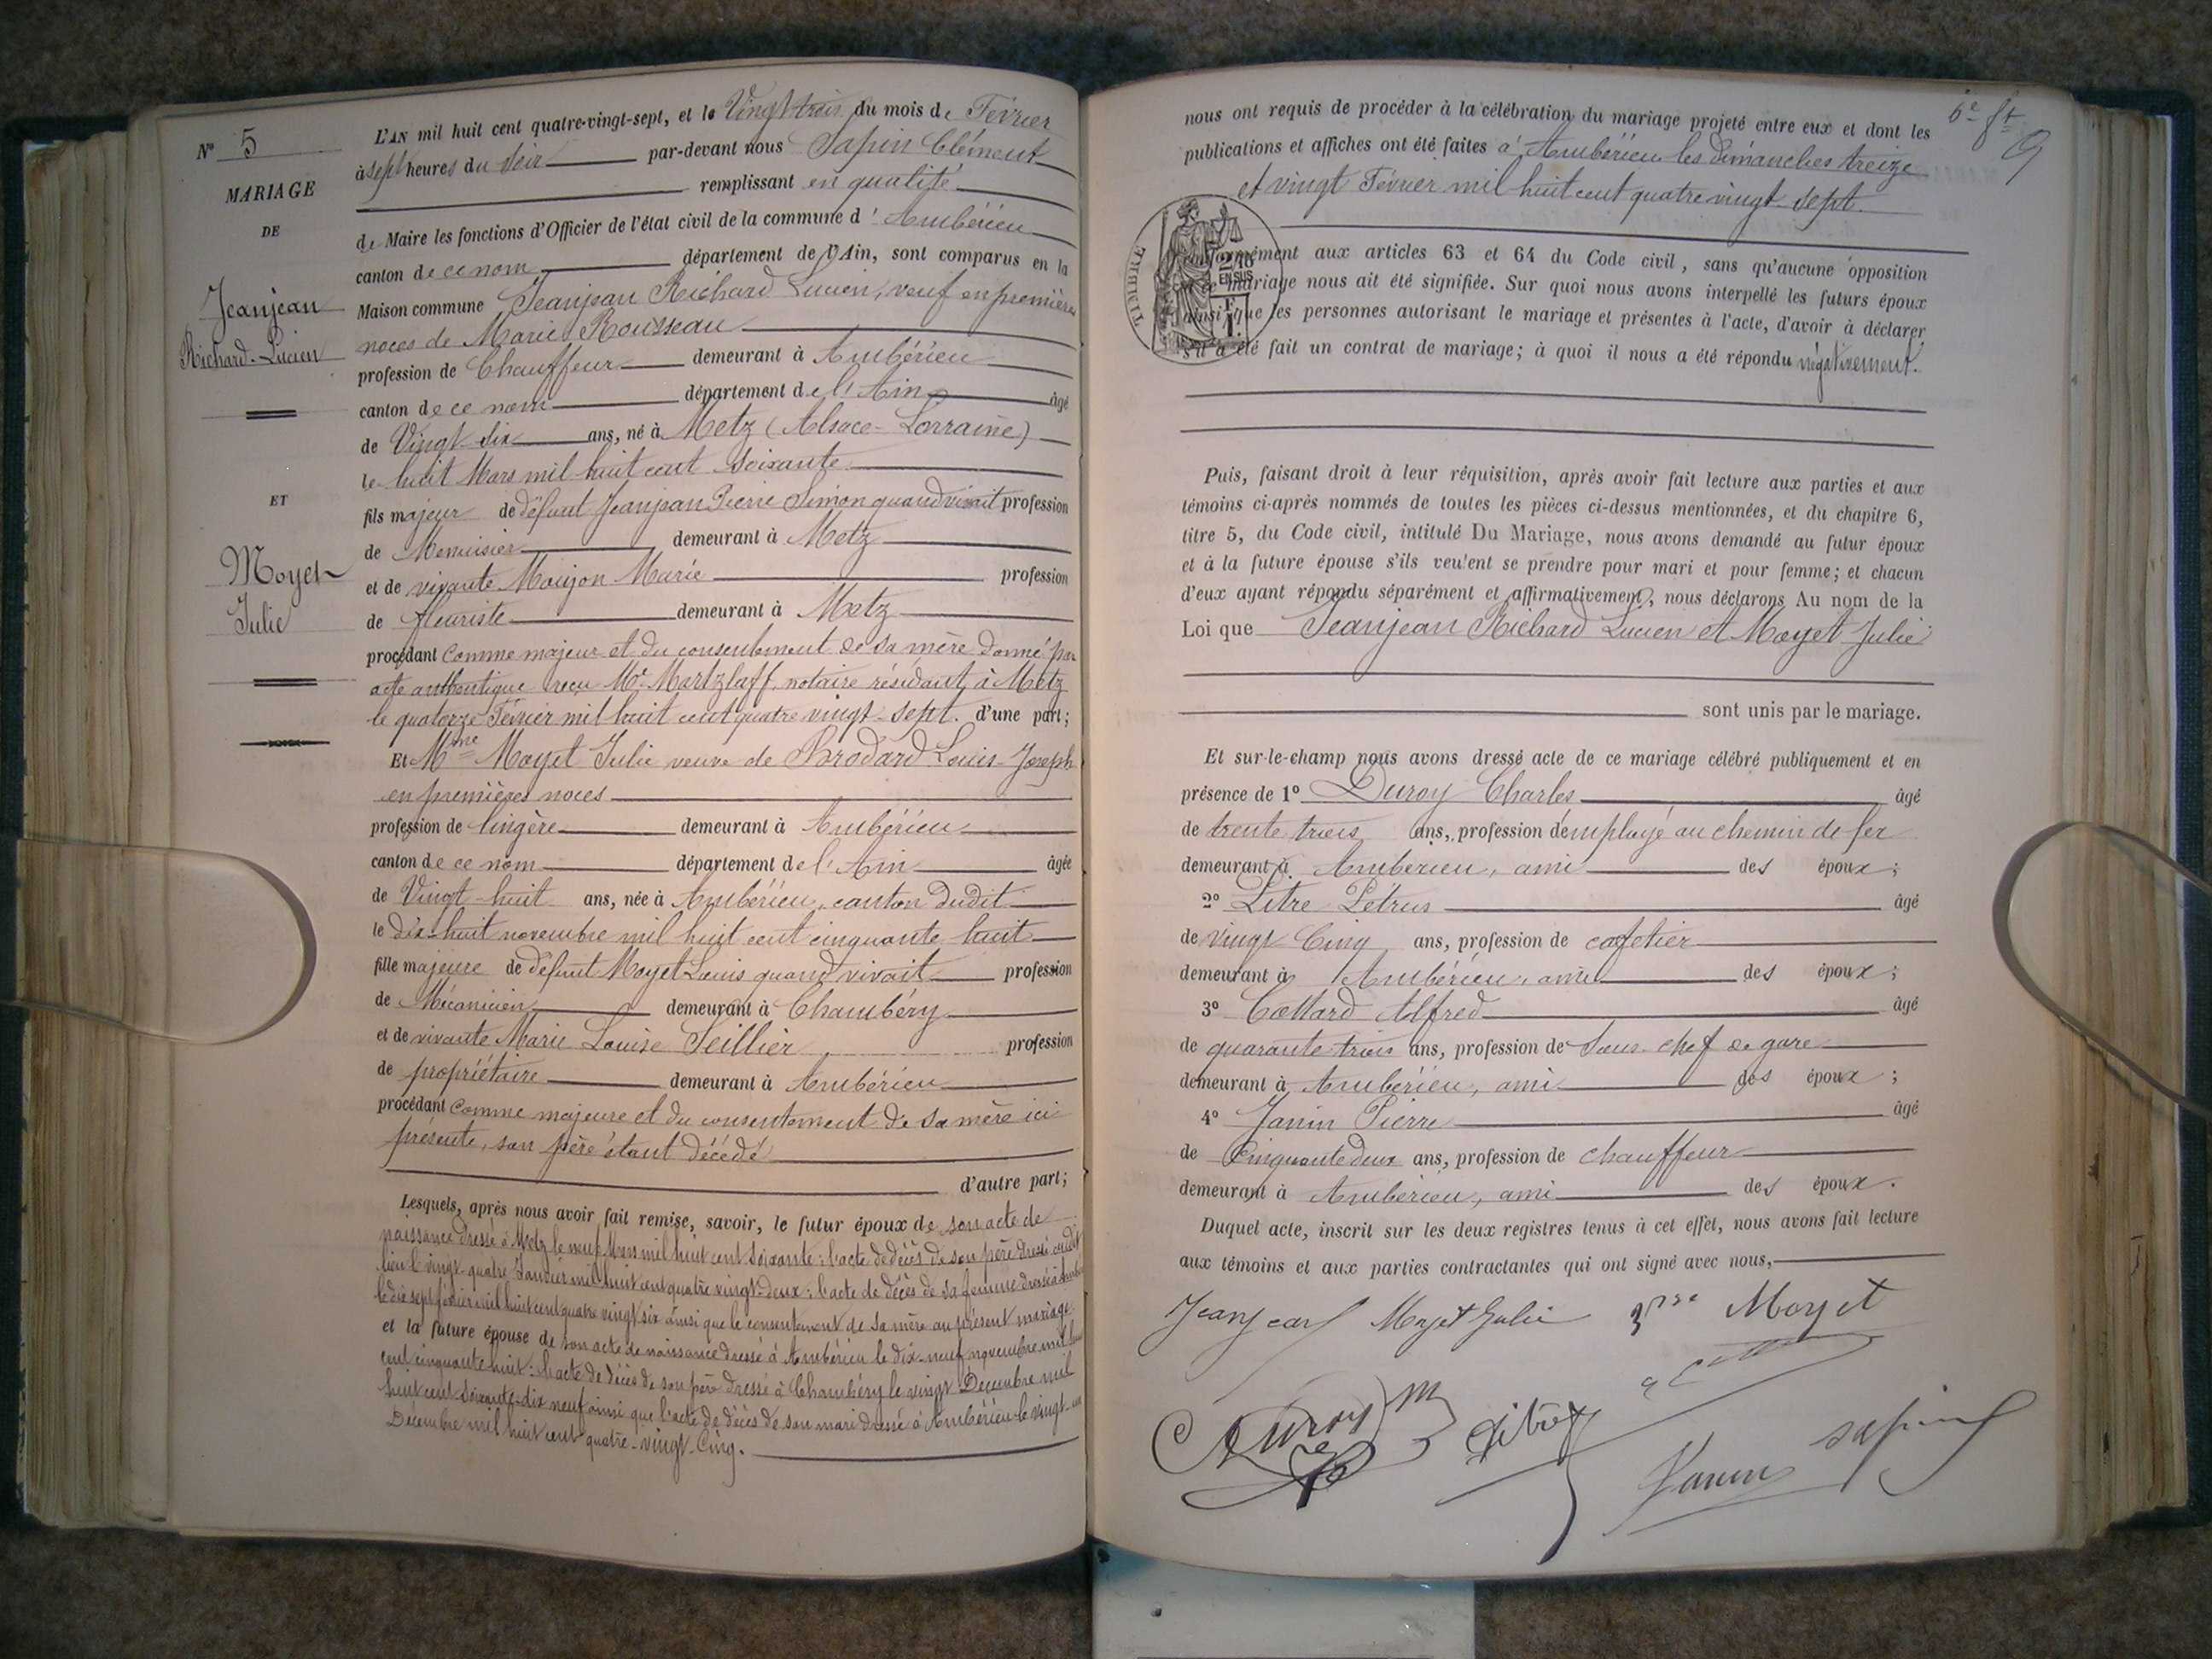 N° 5
MARIAGE
DE
Jeanjean
Richard-Lucien
ET
Moyet
Julie
L'AN mil huit cent quatre-vingt-sept, et le Vingt-trois du mois de Février
à sept heures du soir par-devant nous Sapin Clément
remplissant en qualité
de Maire les fonctions d'Officier de l'état civil de la commune d'Ambérieu
canton de ce nom département de l'Ain, sont comparus en la
Maison commune Jeanjean Richard Lucien, veuf en premières
noces de Marie Rousseau
profession de Chauffeur demeurant à Ambérieu
canton de ce nom département de l'Ain âgé
de Vingt six ans, né à Metz (Alsace-Lorraine)
le huit Mars mil huit cent soixante
fils majeur de défunt Jeanjean Pierre Simon quand vivait profession
de Menuisier demeurant à Metz
et de vivante Moujon Marie profession
de fleuriste demeurant à Metz
procédant comme majeur et du consentement de sa mère donné par
acte authentique reçu Me Martzlaff, notaire résidant à Metz
le quatorze Février mil huit cent quatre vingt-sept. d'une part;
Et Mme Moyet Julie veuve de Brodard Louis-Joseph
en premières noces
profession de lingère demeurant à Ambérieu
canton de ce nom département de l'Ain âgée
de Vingt-huit ans, née à Ambérieu, canton dudit
le dix-huit novembre mil huit cent cinquante huit
fille majeure de défunt Moyet Louis quand vivait profession
de Mécanicien demeurant à Chambéry
et de vivante Marie Louise Seillier profession
de propriétaire demeurant à Ambérieu
procédant comme majeure et du consentement de sa mère ici
présente, son père étant décédé
d'autre part;
Lesquels, après nous avoir fait remise, savoir, le futur époux de son acte de
naissance dressé à Metz le neuf Mars mil huit cent soixante: l'acte de décès de son père dressé audit
lieu le vingt-quatre Janvier mil huit cent quatre vingt-deux: l'acte de décès de sa femme dressé à
le dix sept février mil huit cent quatre vingt six ainsi que le consentement de sa mère au présent mariage
et la future épouse de son acte de naissance dressé à Ambérieu le dix-neuf novembre mil huit
cent cinquante huit: l'acte de décès de son père dressé à Chambéry le vingt Décembre mil
huit cent soixante-dix neuf ainsi que l'acte de décès de son mari dressé à Ambérieu le vingt-un
Décembre mil huit cent quatre-vingt-cinq.
6e ft
9
nous ont requis de procéder à la célébration du mariage projeté entre eux et dont les
publications et affiches ont été faites à Ambérieu les dimanches treize
et vingt Février mil huit cent quatre vingt-sept.
TIMBRE
EN SUS
conformément aux articles 63 et 64 du Code civil, sans qu'aucune opposition
mariage nous ait été signifiée. Sur quoi nous avons interpellé les futurs époux
ainsi que les personnes autorisant le mariage et présentes à l'acte, d'avoir à déclarer
s'il a été fait un contrat de mariage; à quoi il nous a été répondu négativement.
Puis, faisant droit à leur réquisition, après avoir fait lecture aux parties et aux
témoins ci-après nommés de toutes les pièces ci-dessus mentionnées, et du chapitre 6,
titre 5, du Code civil, intitulé Du Mariage, nous avons demandé au futur époux
et à la future épouse s'ils veulent se prendre pour mari et pour femme; et chacun
d'eux ayant répondu séparément et affirmativement, nous déclarons Au nom de la
Loi que Jeanjean Richard Lucien et Moyet Julie
sont unis par le mariage.
Et sur-le-champ nous avons dressé acte de ce mariage célébré publiquement et en
présence de 1° Duroy Charles âgé
de trente trois ans, profession d'employé au chemin de fer
demeurant à Ambérieu, ami des époux;
2° Litre Pétrus âgé
de vingt cinq ans, profession de cafetier
demeurant à Ambérieu, ami des époux;
3° Cottard Alfred âgé
de quarante trois ans, profession de Sous-chef de gare
demeurant à Ambérieu, ami des époux;
4° Janin Pierre âgé
de cinquante deux ans, profession de chauffeur
demeurant à Ambérieu, ami des époux.
Duquel acte, inscrit sur les deux registres tenus à cet effet, nous avons fait lecture
aux témoins et aux parties contractantes qui ont signé avec nous,
Jeanjean Moyet Julie Moyet
Duroy Litre
Janin Sapin